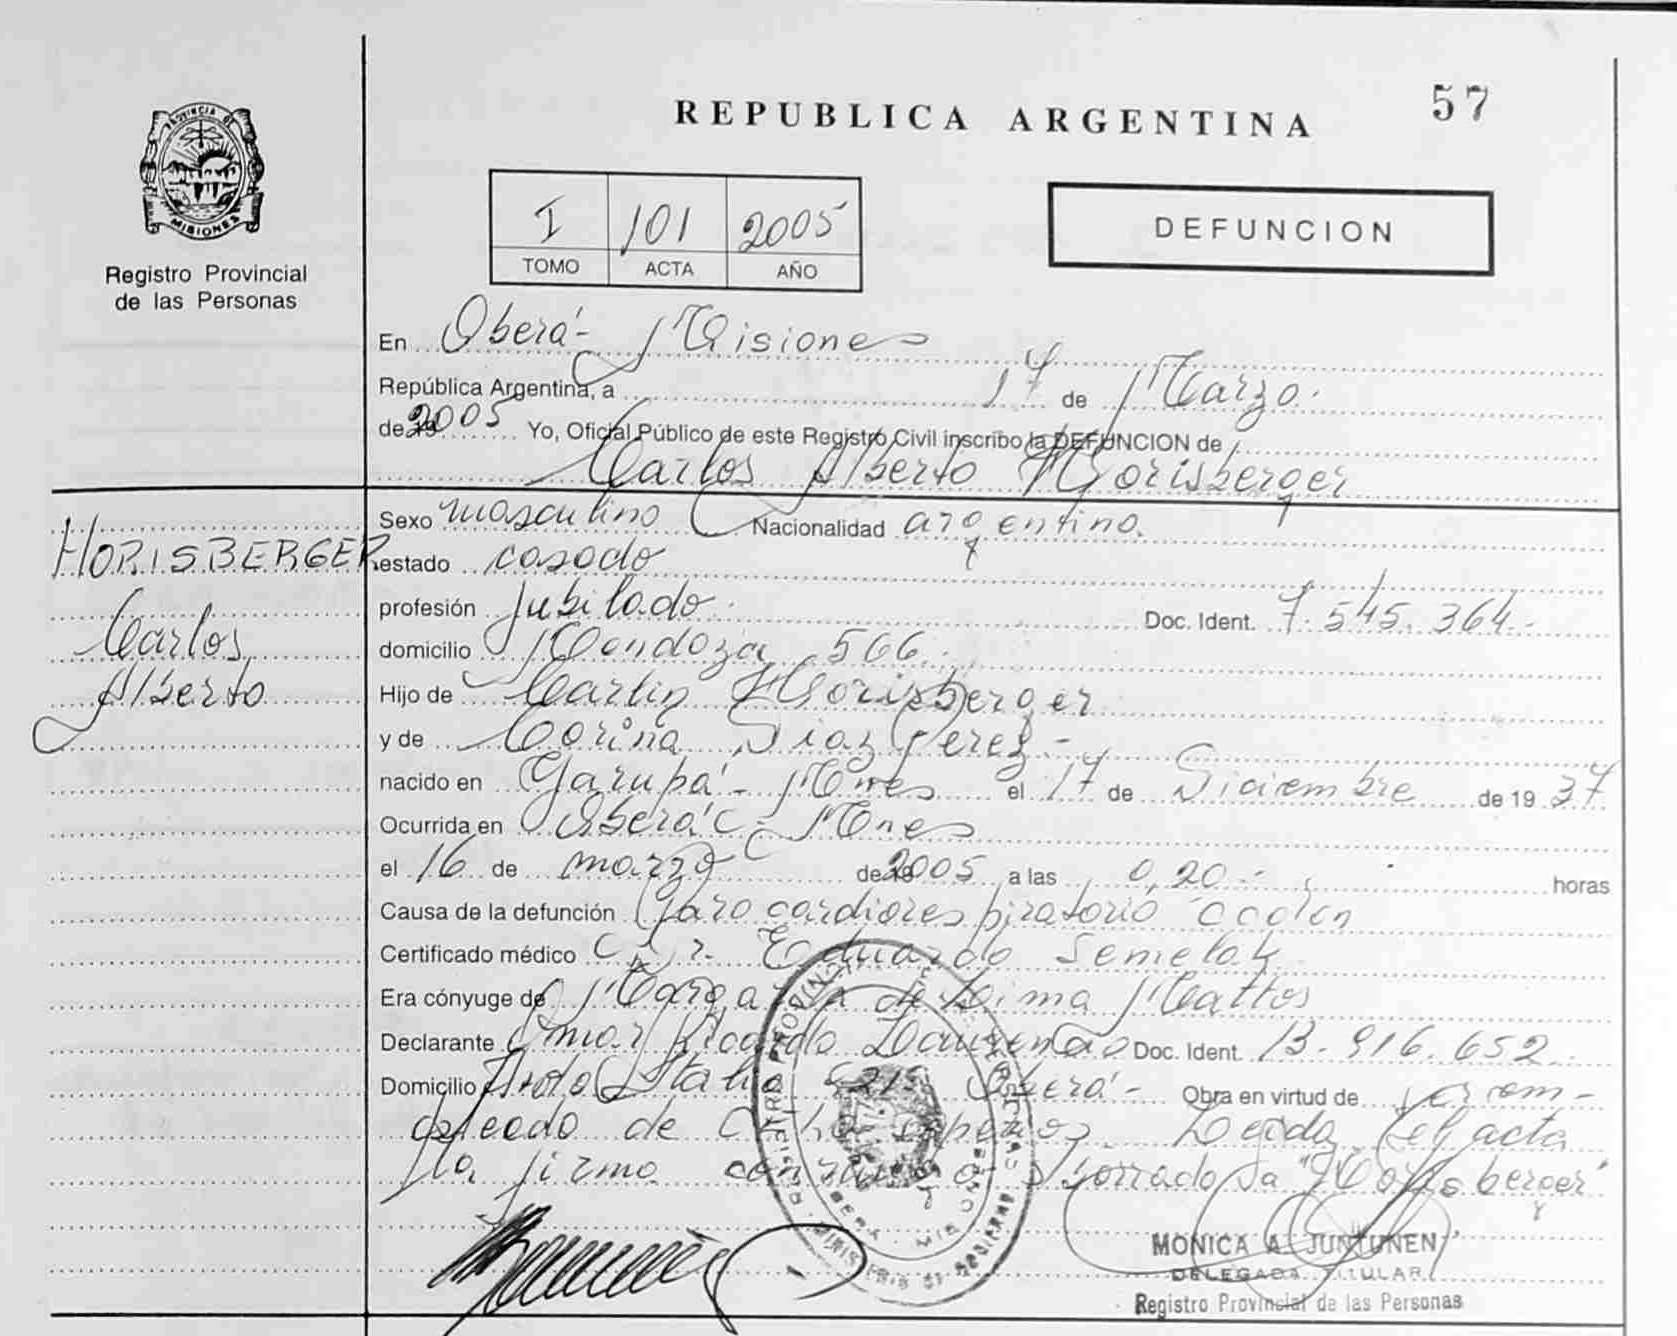 57
REPUBLICA ARGENTINA
PROVINCIA DE
MISIONES
Registro Provincial
de las Personas
I 101 2005
TOMO ACTA AÑO
DEFUNCION
En Oberá - Misiones
República Argentina, a 17 de Marzo.
de 2005 Yo, Oficial Público de este Registro Civil inscribo la DEFUNCION de
Carlos Alberto Horisberger
HORISBERGER
Carlos
Alberto
Sexo masculino Nacionalidad argentino.
estado casado
profesión Jubilado. Doc. Ident. 7.545.364.-
domicilio Mendoza 566.
Hijo de Martin Horisberger
y de Corina Diaz Perez -
nacido en Garupá - Mnes el 17 de Diciembre de 19 37
Ocurrida en Oberá - Mnes
el 16 de marzo de 2005 a las 0,20.- horas
Causa de la defunción Paro cardiorespiratorio
Certificado médico Dr. Eduardo Semelak
Era cónyuge de Margarita de Lima Mattos
Declarante Omar Ricardo Doc. Ident. 13.916.652.-
Domicilio Italia Oberá - Obra en virtud de ser em-
pleado de Leida el acta
la firma Borrado "Horisberger"
MONICA A. JUNTUNEN
DELEGADA TITULAR
Registro Provincial de las Personas